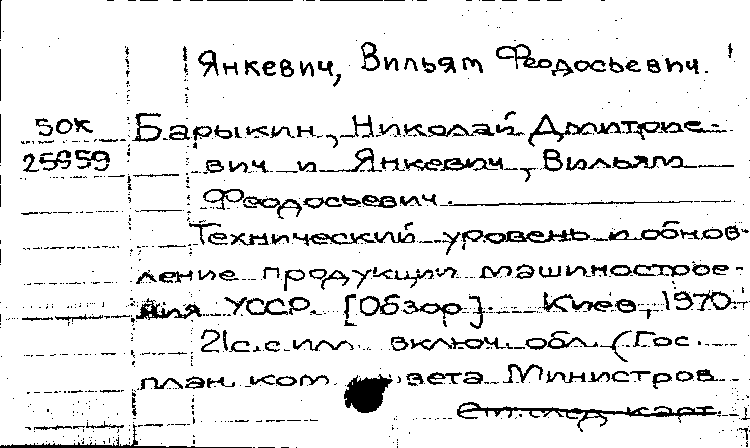 Янкевич, Вильям Феодосьевич.
50К Барыкин, Николай Дмитрие-
25959 вич и Янкевич, Вильям
Феодосьевич.
Технический уровень и обнов-
ление продукции машинострое-
ния УССР. [Обзор] Киев, 1970
21с. с ил. включ. обл. (Гос.
план. ком вета Министров
см. след карт.